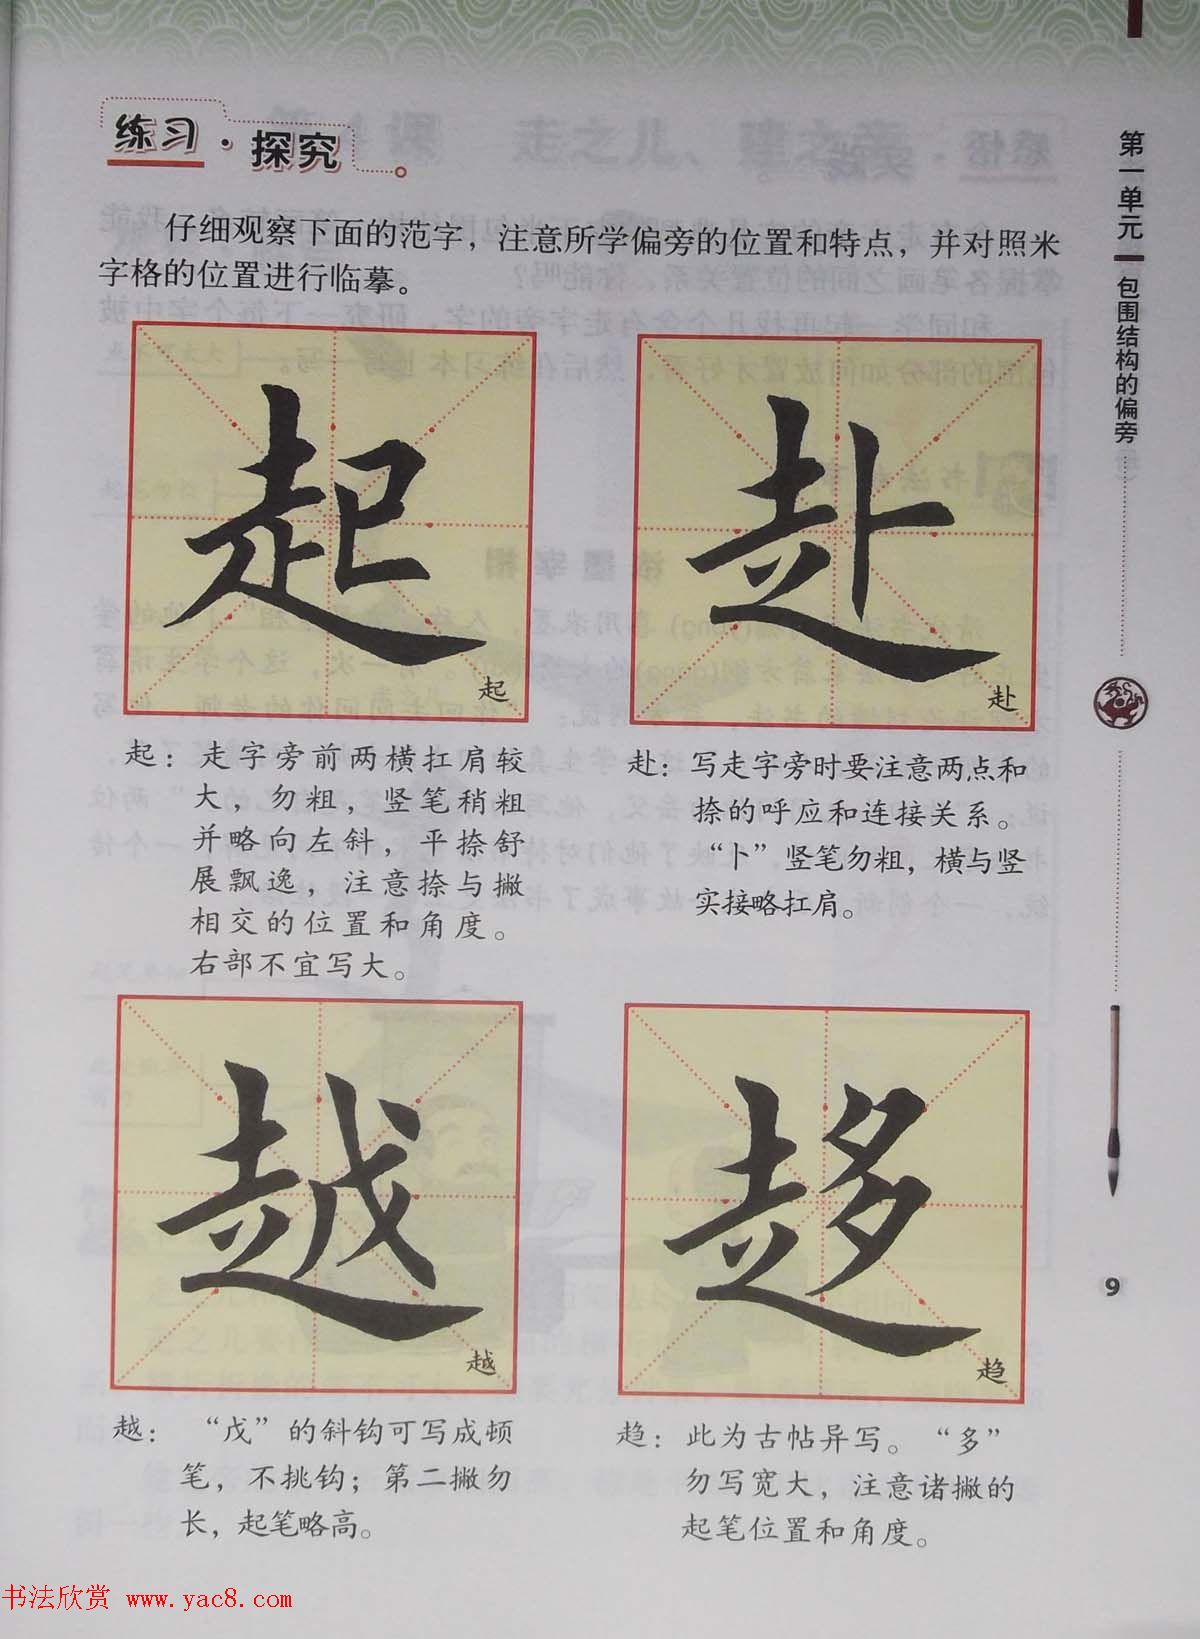 练习·探究
仔细观察下面的范字，注意所学偏旁的位置和特点，并对照米
字格的位置进行临摹。
起
起
赴
赴
起：走字旁前两横扛肩较
大，勿粗，竖笔稍粗
并略向左斜，平捺舒
展飘逸，注意捺与撇
相交的位置和角度。
右部不宜写大。
赴：写走字旁时要注意两点和
捺的呼应和连接关系。
“卜”竖笔勿粗，横与竖
实接略扛肩。
越
越
趍
趋
越：“戊”的斜钩可写成顿
笔，不挑钩；第二撇勿
长，起笔略高。
趋：此为古帖异写。“多”
勿写宽大，注意诸撇的
起笔位置和角度。
第一单元
包围结构的偏旁
9
书法欣赏 www.yac8.com